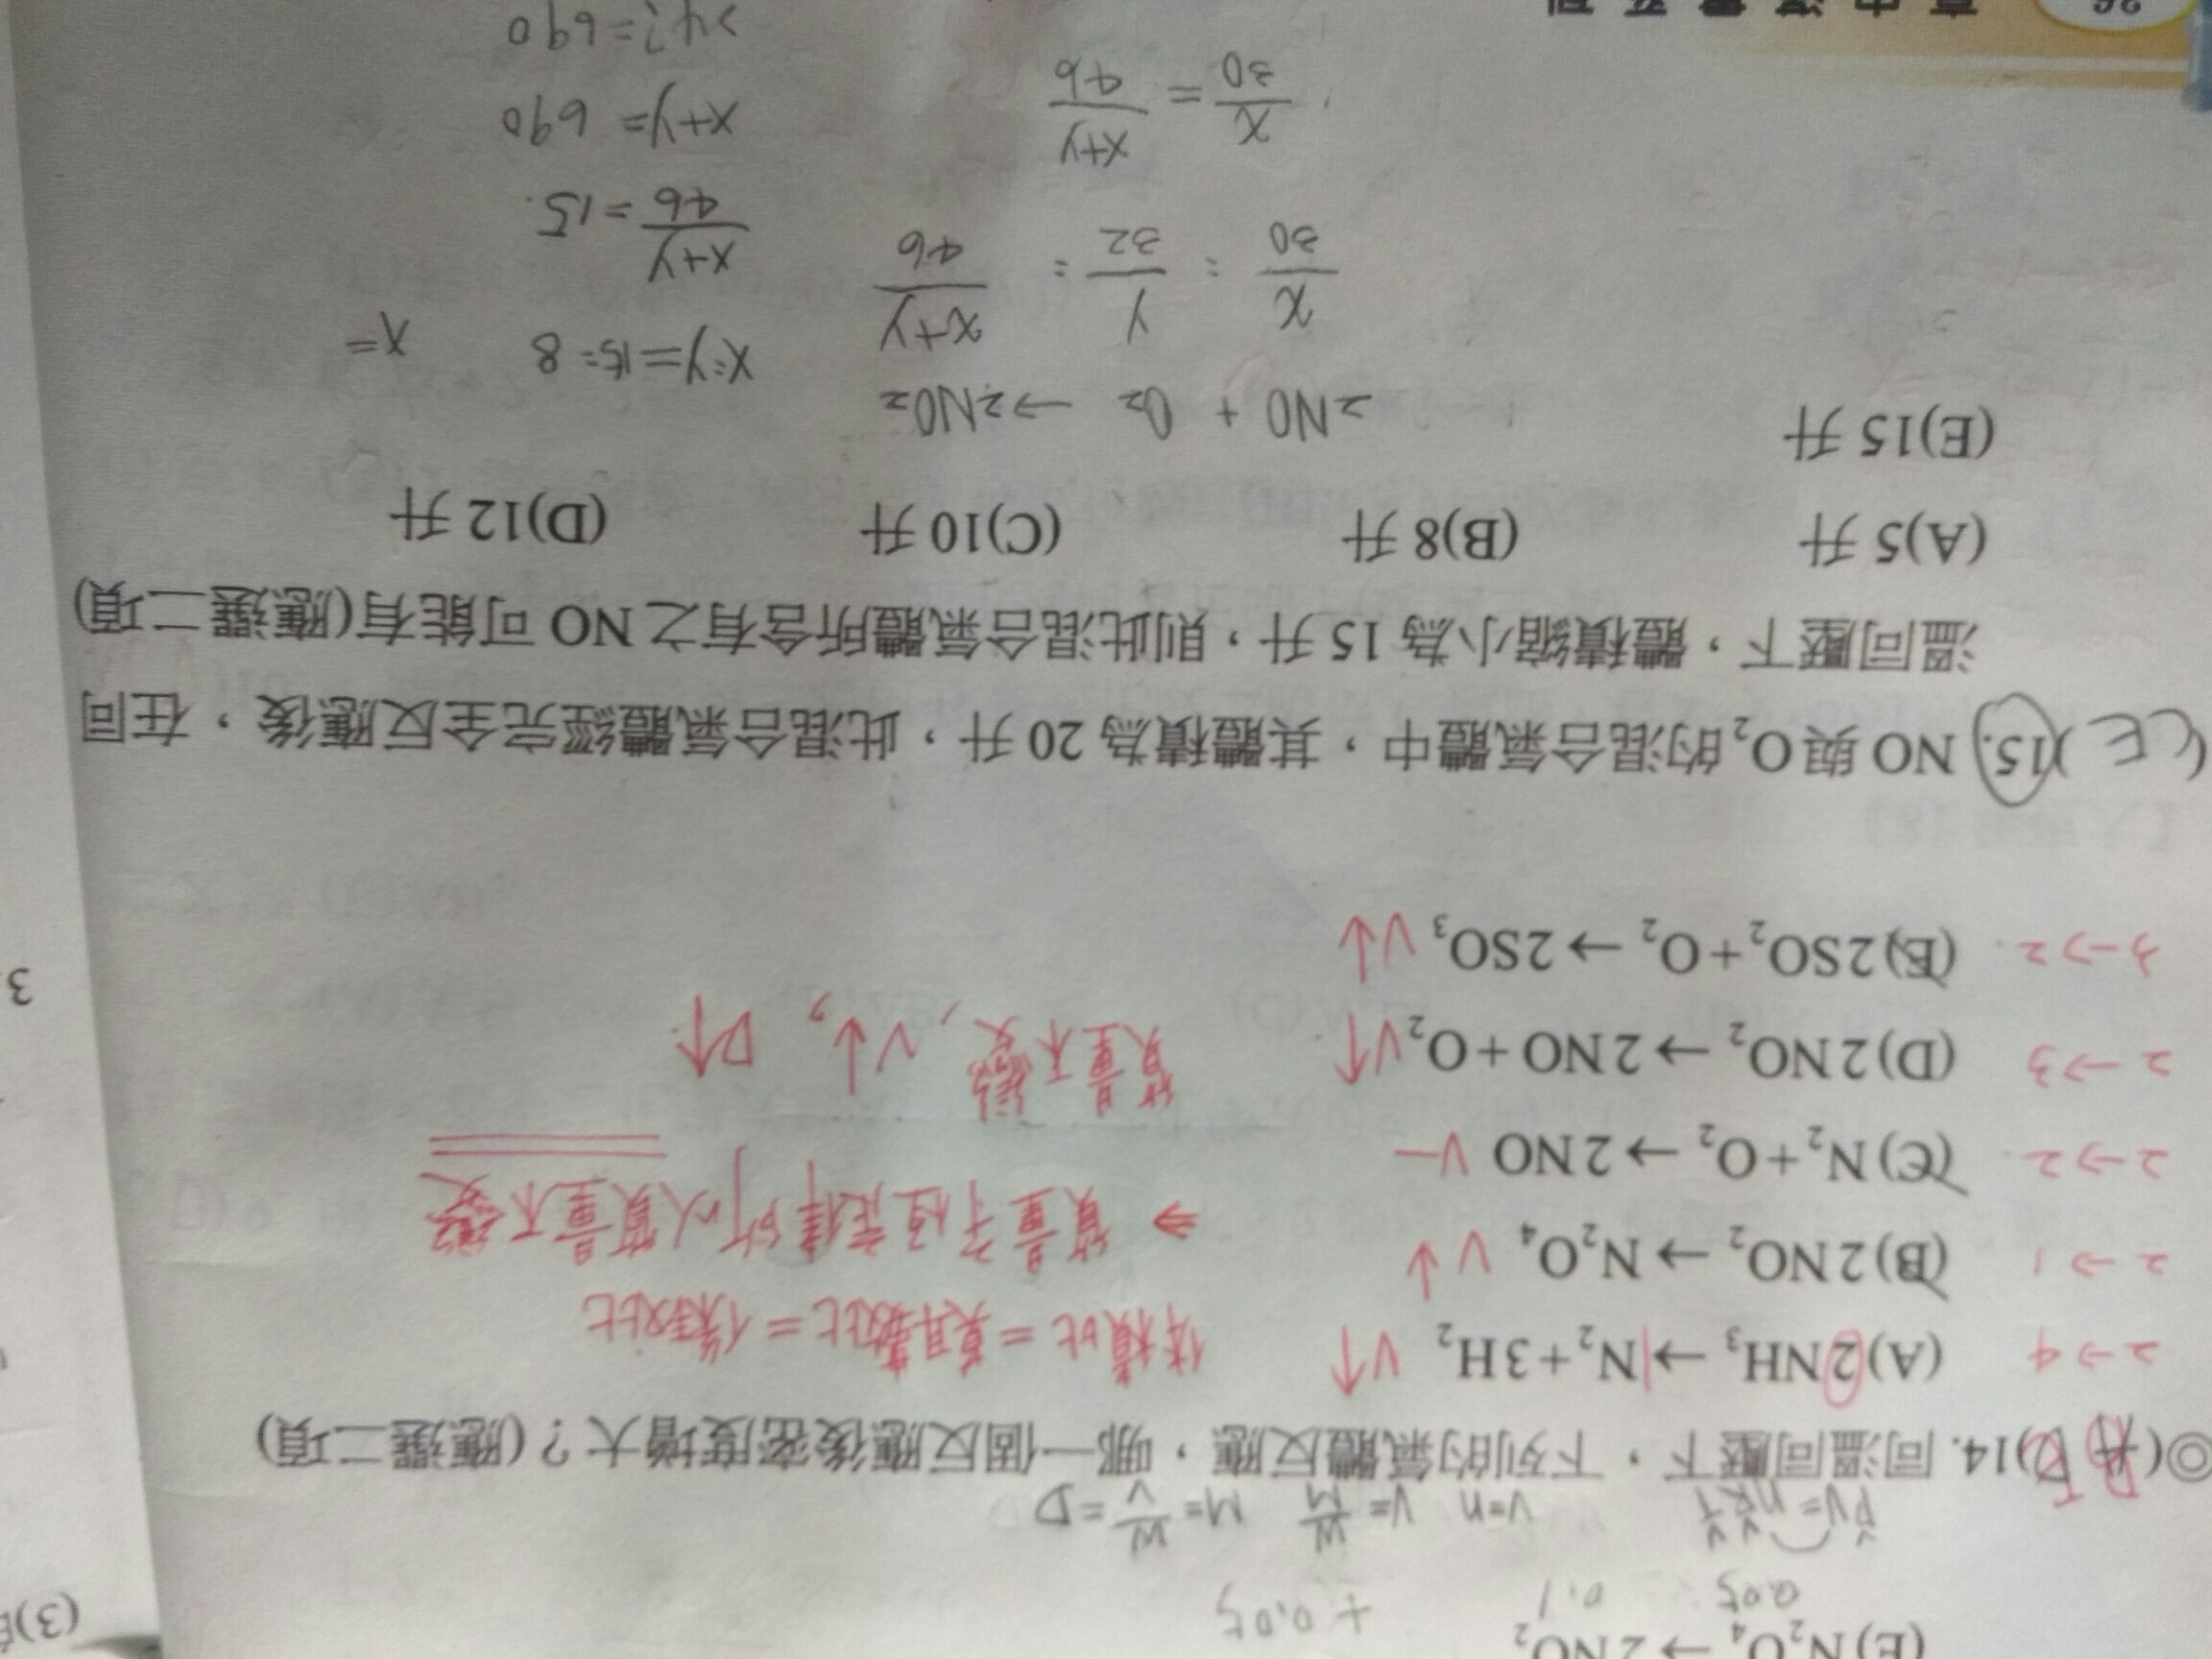 (E)N₂O₄ → 2NO₂
0.05 0.1 + 0.05
PV=nRT V=n V=W/M M=W/V=D
◎( )14. 同溫同壓下，下列的氣體反應，哪一個反應後密度增大？(應選二項)
2→4 (A)2NH₃ → N₂+3H₂ V↑ 体積比=莫耳數比=係數比
2→1 (B)2NO₂ → N₂O₄ V↓ ⇒ 質量守恆定律所以質量不變
2→2 (C)N₂+O₂ → 2NO V—
2→3 (D)2NO₂ → 2NO+O₂ V↑ 質量不變, V↓, D↑
3→2 (E)2SO₂+O₂ → 2SO₃ V↓
(CE)15. NO 與 O₂的混合氣體中，其體積為 20 升，此混合氣體經完全反應後，在同
溫同壓下，體積縮小為 15 升，則此混合氣體所含有之 NO 可能有(應選二項)
(A)5 升 (B)8 升 (C)10 升 (D)12 升
(E)15 升
2NO + O₂ → 2NO₂ x:y=15:8 x=
x/30 : y/32 : x+y/46 x+y/46=15
x/30 = x+y/46 x+y=690
=690
26 高中選書系列
(3)
3